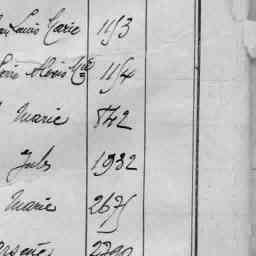 Louis Marie 1153
Alexis 1154
Marie 842
Jules 1932
Marie 2675
2790